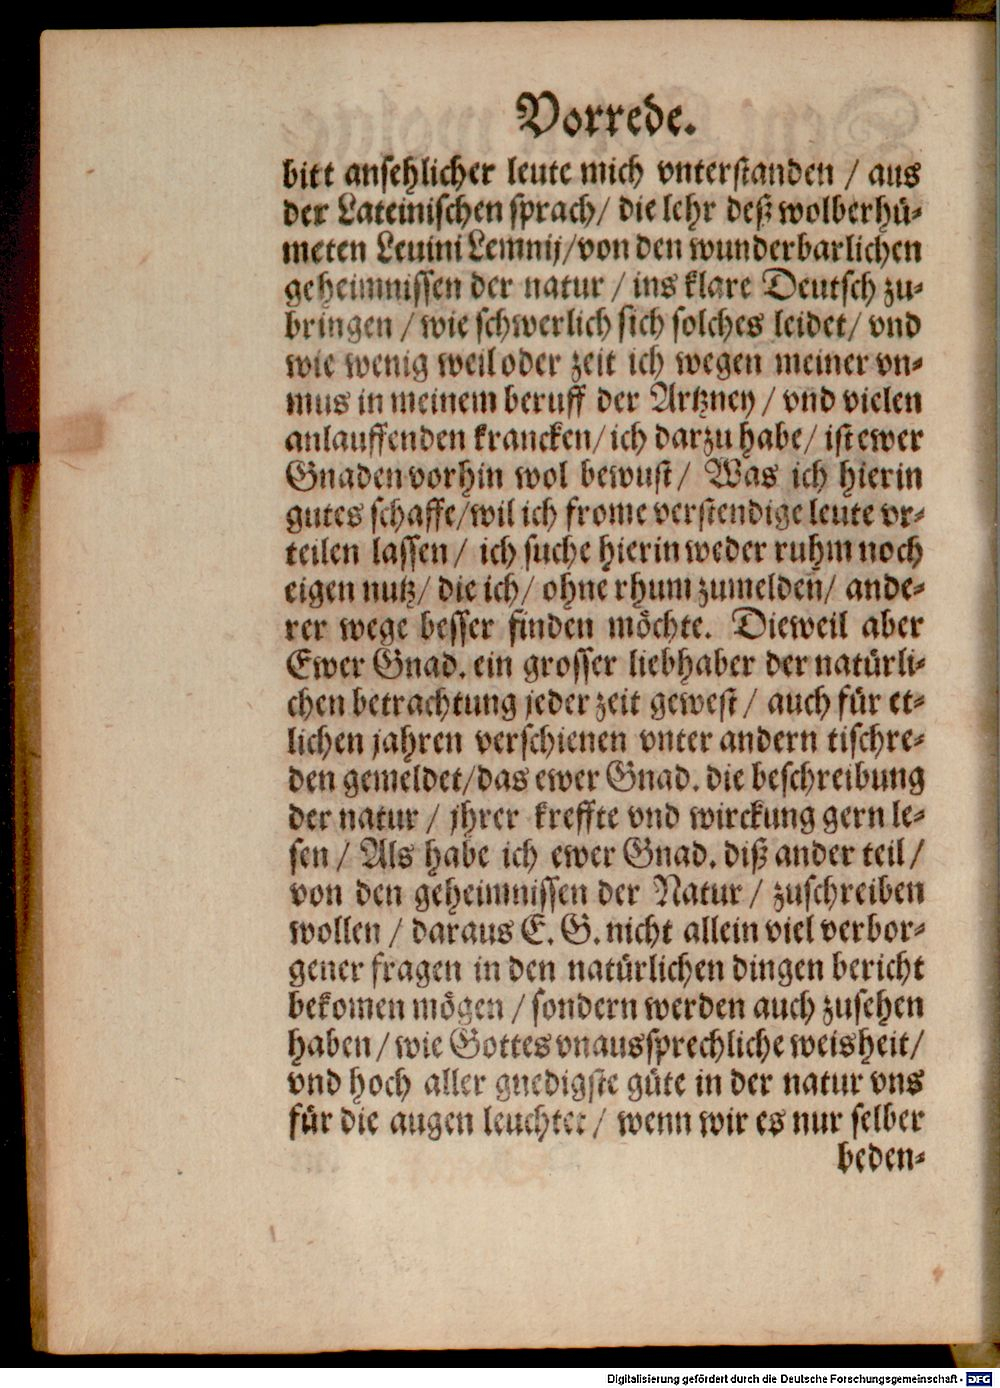 Vorrede.
bitt ansehlicher leute mich vnterstanden / aus
der Lateinischen sprach / die lehr deß wolberhü⸗
meten Leuini Lemnij / von den wunderbarlichen
geheimnissen der natur / ins klare Deutsch zu⸗
bringen / wie schwerlich sich solches leidet / vnd
wie wenig weil oder zeit ich wegen meiner vn⸗
mus in meinem beruff der Artzney / vnd vielen
anlauffenden krancken / ich darzu habe / ist ewer
Gnaden vorhin wol bewust / Was ich hierin
gutes schaffe / wil ich frome verstendige leute vr⸗
teilen lassen / ich suche hierin weder ruhm noch
eigen nutz / die ich / ohne rhum zumelden / ande⸗
rer wege besser finden möchte. Dieweil aber
Ewer Gnad. ein grosser liebhaber der natürli⸗
chen betrachtung jeder zeit gewest / auch für et⸗
lichen jahren verschienen vnter andern tischre⸗
den gemeldet / das ewer Gnad. die beschreibung
der natur / jhrer kreffte vnd wirckung gern le⸗
sen / Als habe ich ewer Gnad. diß ander teil /
von den geheimnissen der Natur / zuschreiben
wollen / daraus E. G. nicht allein viel verbor⸗
gener fragen in den natürlichen dingen bericht
bekomen mögen / sondern werden auch zusehen
haben / wie Gottes vnaussprechliche weisheit /
vnd hoch aller gnedigste güte in der natur vns
für die augen leuchtet / wenn wir es nur selber
beden⸗
Digitalisierung gefördert durch die Deutsche Forschungsgemeinschaft - DFG